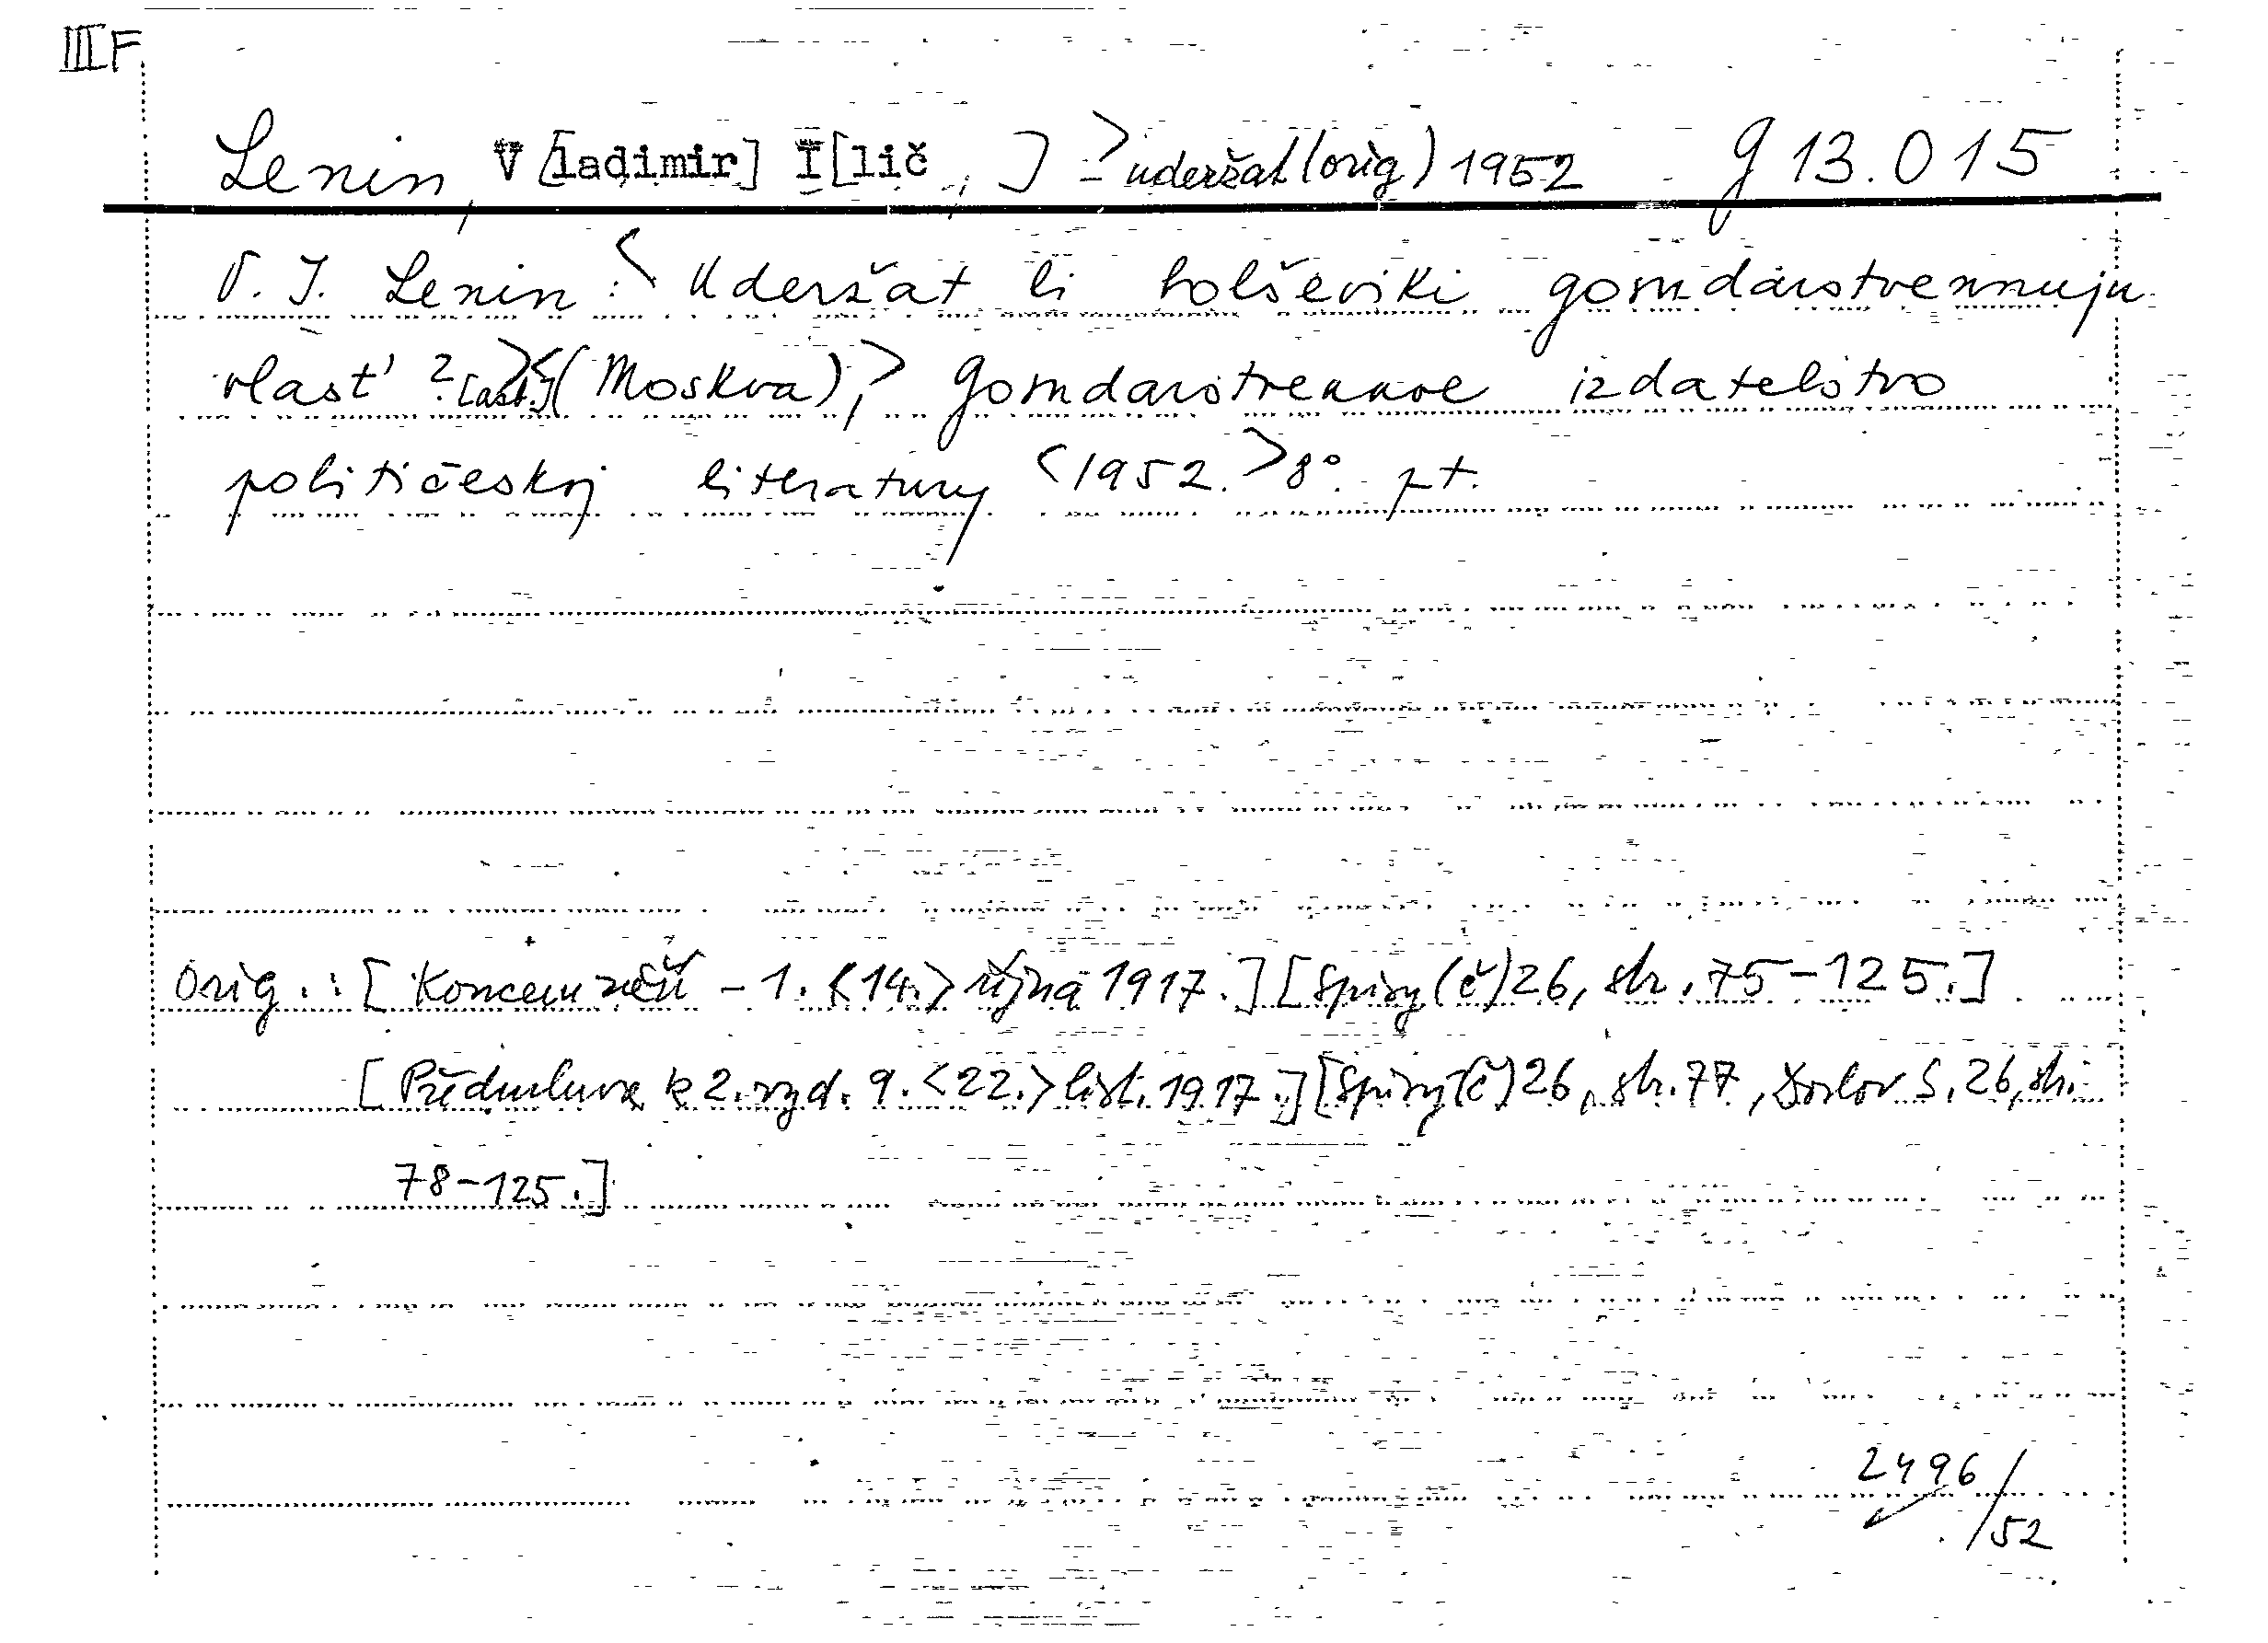 III F
Lenin, V[ladimir] I[lič , ] > uderžat (orig) 1952 g 13.015
V. I. Lenin: < Uderžat li bolševiki gosudarstvennuju
vlast' ? > < (Moskva), > Gosudarstvennoe izdatelstvo
političeskoj literatury <1952.> 8°.
Orig.: [Koncem září – 1. <14.> října 1917.] [Spisy (č) 26, str. 75–125.]
[Předmluva k 2. vyd. 9. <22.> list. 1917.] [Spisy (č) 26, str. 77, Doslov S. 26, str.
78–125.]
2496/
/52